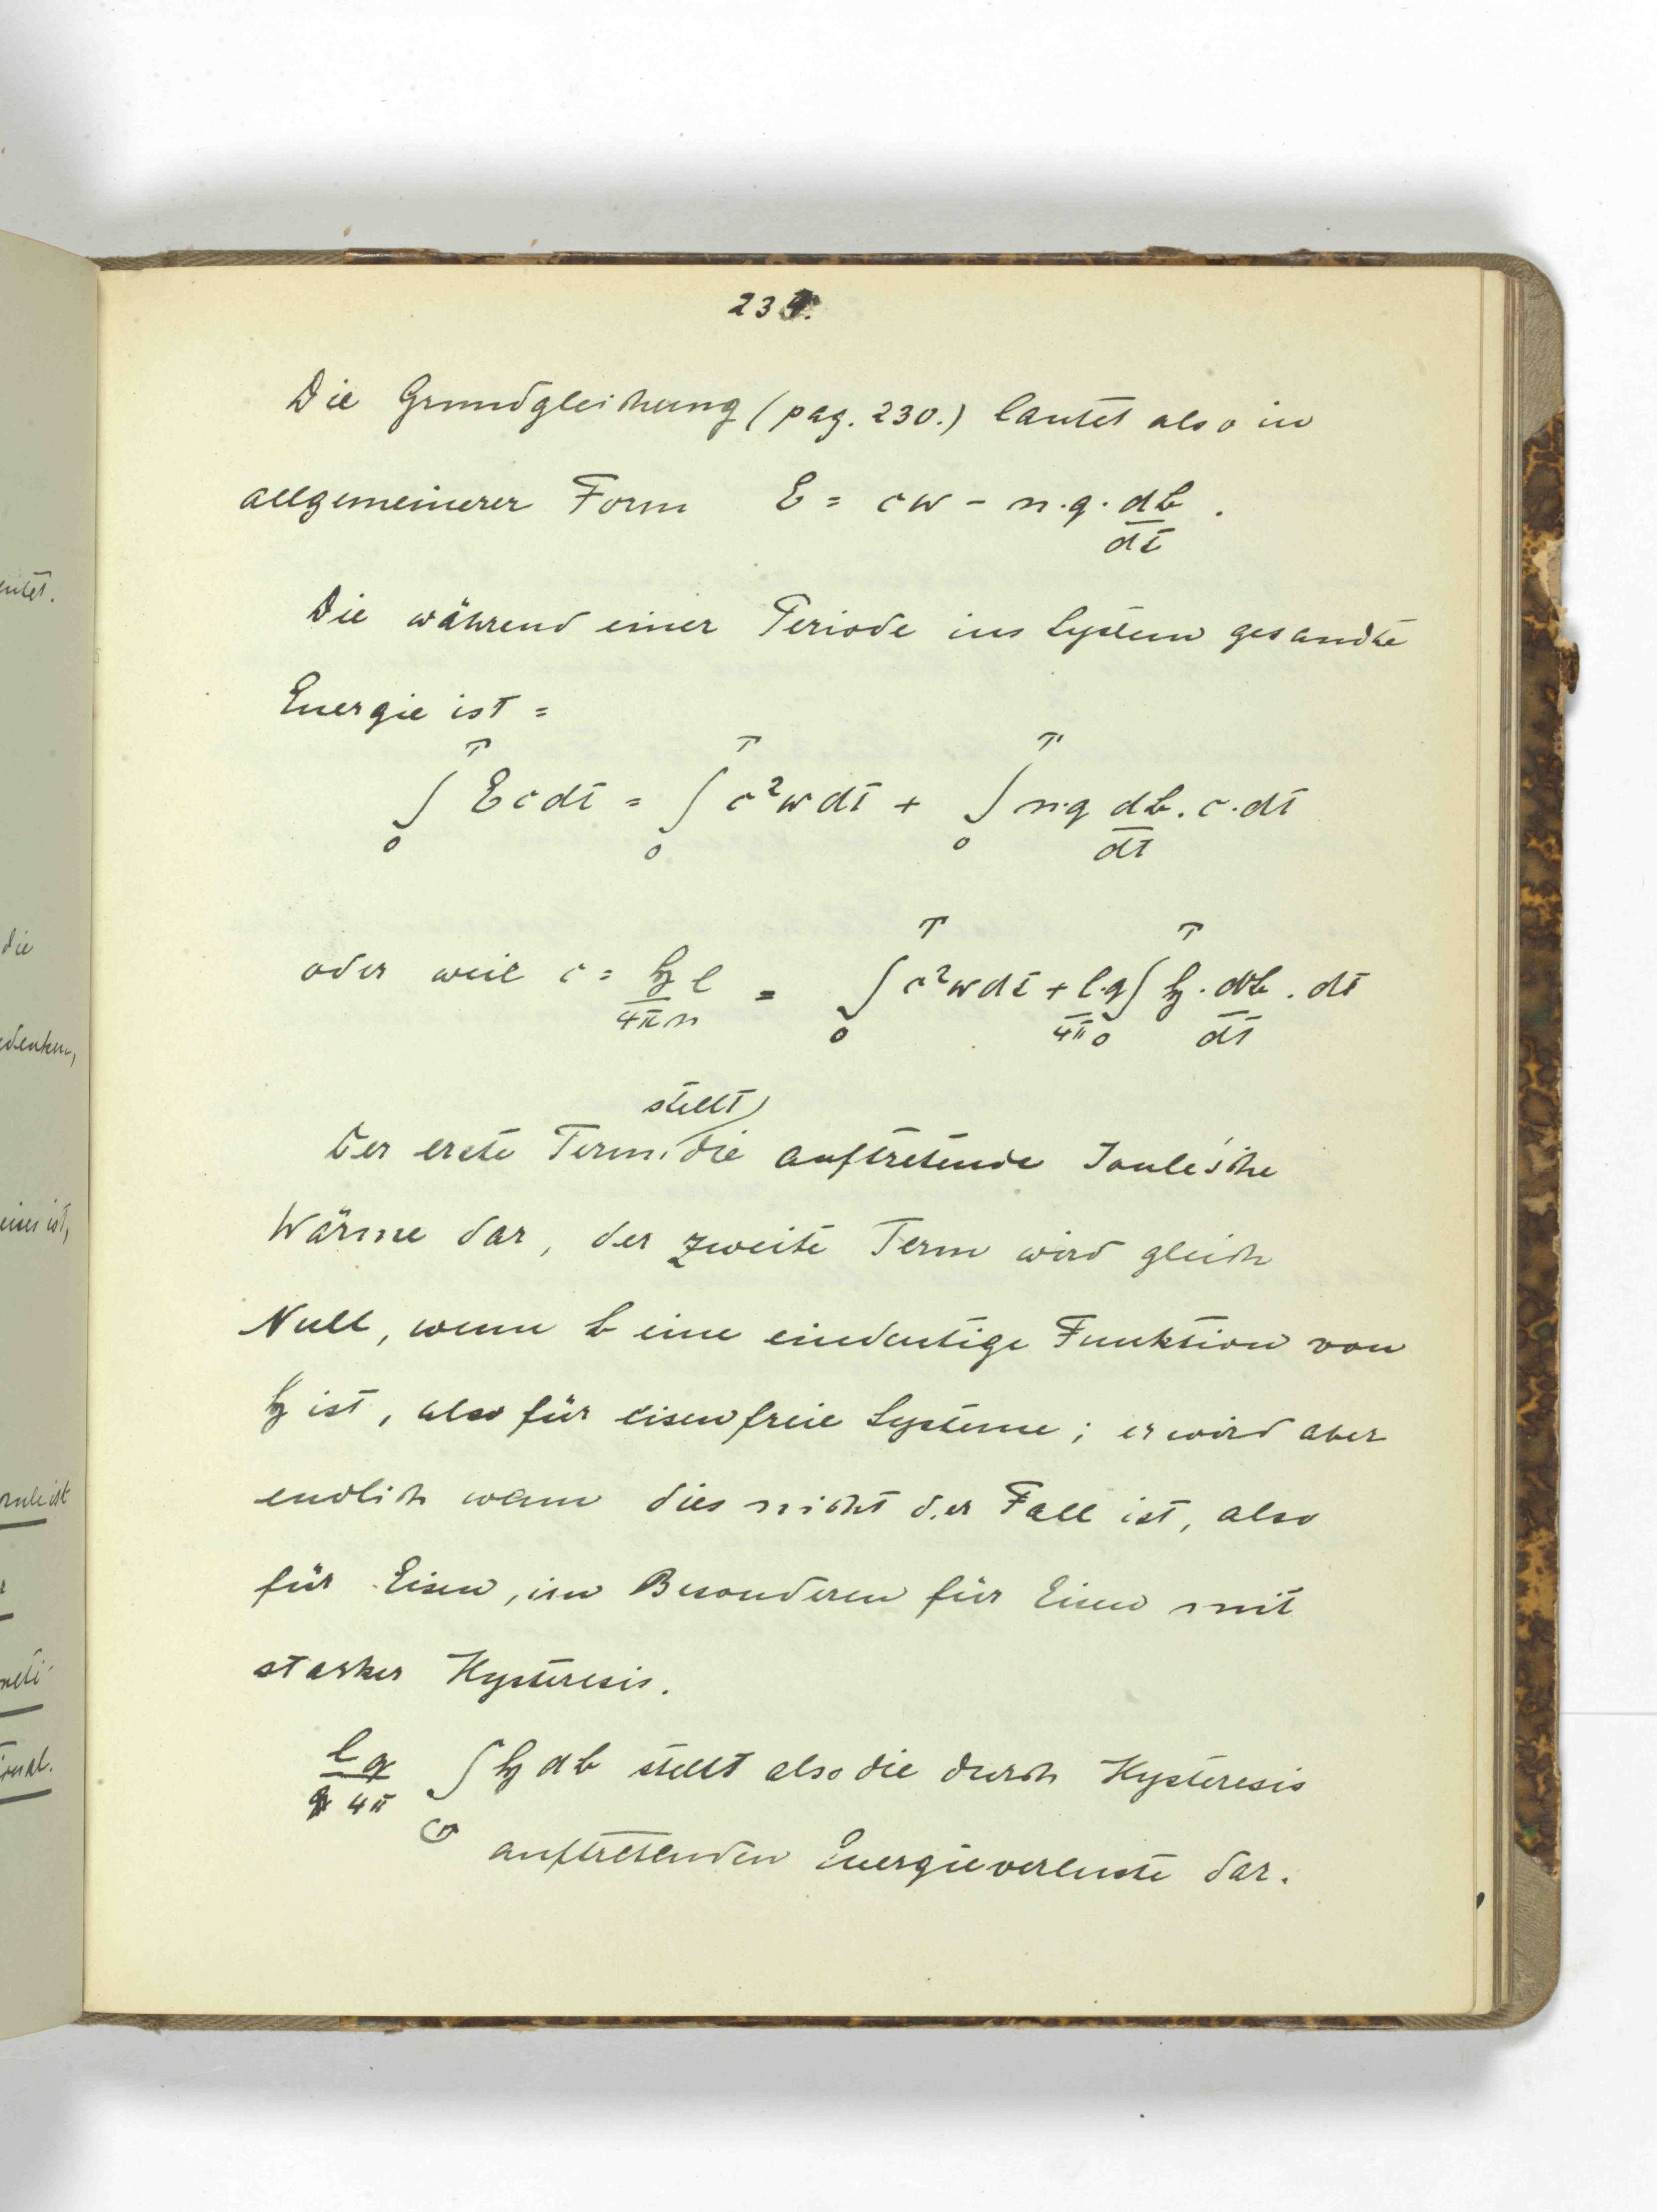 234.
Die Grundgleichung (pag. 230.) lautet also in
allgemeinerer Form E = cw - n.q. d𝔅/dt .
Die während einer Periode ins System gesandte
Energie ist =
∫₀ᵀ Ecdt = ∫₀ᵀ c²wdt + ∫₀ᵀ n.q d𝔅/dt . c.dt
oder weil c = ℌl/4πn = ∫₀ᵀ c²wdt + l.q/4π ∫₀ᵀ ℌ. d𝔅/dt . dt
stellt
Der erste Term die auftretende Joule'sche
Wärme dar, der zweite Term wird gleich
Null, wenn 𝔅 eine eindeutige Funktion von
ℌ ist, also für eisenfreie Systeme; er wird aber
endlich wenn dies nicht der Fall ist, also
für Eisen, im Besonderen für Eisen mit
starker Hysteresis.
lq/4π ∫ ℌ d𝔅 stellt also die durch Hysteresis
auftretenden Energieverluste dar.
die
edenken,
eines ist,